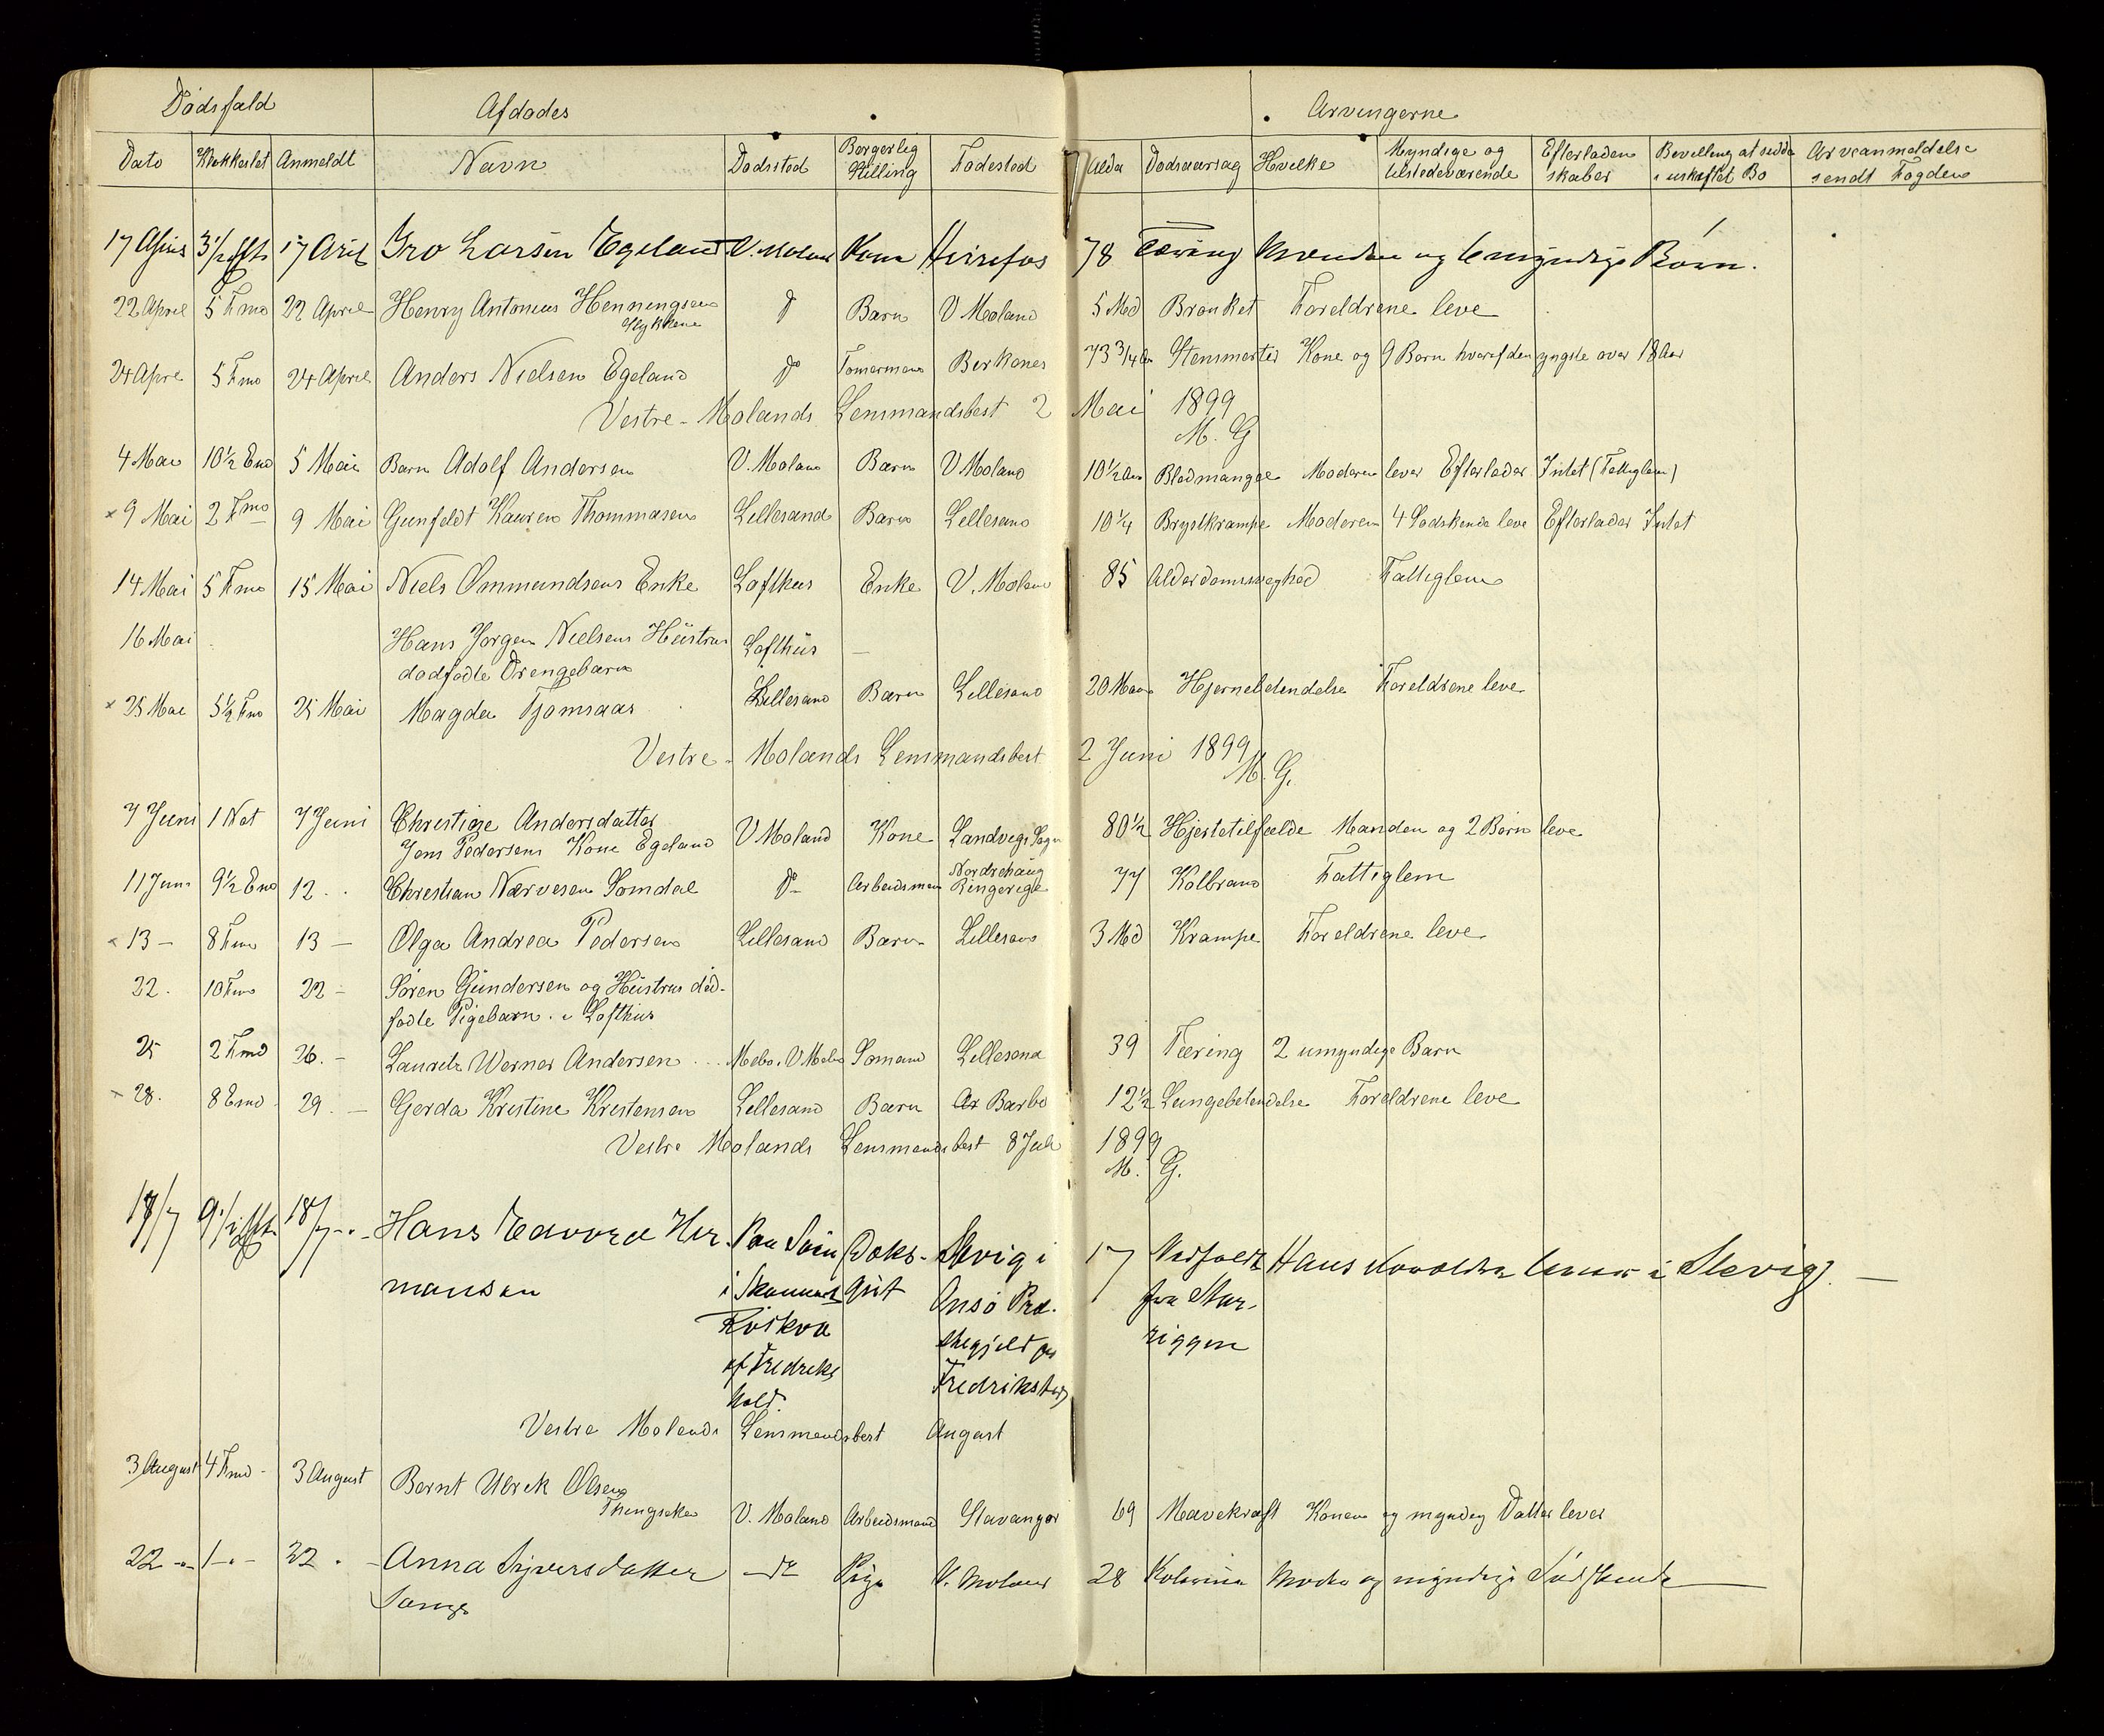 Dødsfald Afdødes Arvingerne
Dato Klokkeslet Anmeldt Navn Dødssted Borgerlig Stilling Fødested Alder Dødsaarsag Hvilke Myndige og tilstedeværende Efterladenskaber Bevilling at sidde i uskiftet Bo Arveanmeldelse sendt Fogden
17 3 1/2 17 Gro Larsen Egeland V. Moland Kone Herefos 78 Tæring Manden og 6 myndige Børn.
22 April 5 Fmd 22 April Henry Antonius Henningsen do Barn V Moland 5 Md Bronket Foreldrene leve
24 April 5 Fmd 24 April Anders Nielsen Egeland do Tømermand Birkenes 73 3/4 Stensmerter Kone og 9 Børn hvoraf den yngste over 18 Aar
Vestre-Molands Lensmandsbest 2 Mai 1899
M. G
4 Mai 10 1/2 Emd 5 Mai Barn Adolf Andersen V. Moland Barn V Moland 10 1/2 Blodmangel Moderen lever Efterlader Intet (Fattiglem)
x 9 Mai 2 Fmd 9 Mai Gunfeldt Thommasen Lillesand Barn Lillesand 10 1/4 Brystkrampe Moderen 4 Sødskende leve Efterlader Intet
14 Mai 5 Fmd 15 Mai Niels Ommundsens Enke Lofthus Enke V. Moland 85 Alderdomssvaghed Fattiglem
16 Mai Hans Jørgen Nielsens Hustrus Lofthus –
dødfødte Drengebarn
x 25 Mai 5 1/2 Fmd 25 Mai Magda Tjomsaas Lillesand Barn Lillesand 20 Hjernebetendelse Foreldrene leve
Vestre-Molands Lensmandsbest 2 Juni 1899
M. G.
7 Juni 1 Nat 7 Juni Christine Andersdatter
Jens Pedersens Kone Egeland V Moland Kone Landvigs Sogn 80 1/2 Hjertetilfælde Manden og 2 Børn leve
11 Juni 9 1/2 Emd 12 . . Christian Nærvesen Somdal do Arbeidsmand Nordrehaug Ringerige 77 Kolbrand Fattiglem
x 13 – 8 Fmd 13 – Olga Andrea Pedersen Lillesand Barn Lillesand 3 Md Krampe Foreldrene leve
22. 10 Fmd 22 – Søren Gundersen og Hustrus død-
fødte Pigebarn. i Lofthus
25 2 Fmd 26. – Lauritz Werner Andersen Mebø. V Sømand Lillesand 39 Tæring 2 umyndige Barn
x 28. 8 Emd 29. – Gerda Kristine Kristensen Lillesand Barn Barbo 12 1/2 Lungebetendelse Foreldrene leve
Vestre Molands Lensmandsbest 8 Juli 1899
M. G.
18/7 9 1/2 18/7 Hans Edvard Her- Paa Søen Dæks- Slevig i 17 Nedfaldt Hans Forældre lever i Slevig. –
mansen i Skonnert gut Onsø Præ- fra Stor-
af Fredriks stegjeld riggen
hald. Fredrikstad
Vestre Molands Lensmandsbest August
3 August 4 Fmd 3 August Bernt Ulrik Olsen
V. Moland Arbeidsmand Stavanger 69 Mavekræft Konen og myndig Datter lever
22 – 1 – 22 . – Anna Syversdatter do Pige V. Moland 28 Moder og myndige Sødskende